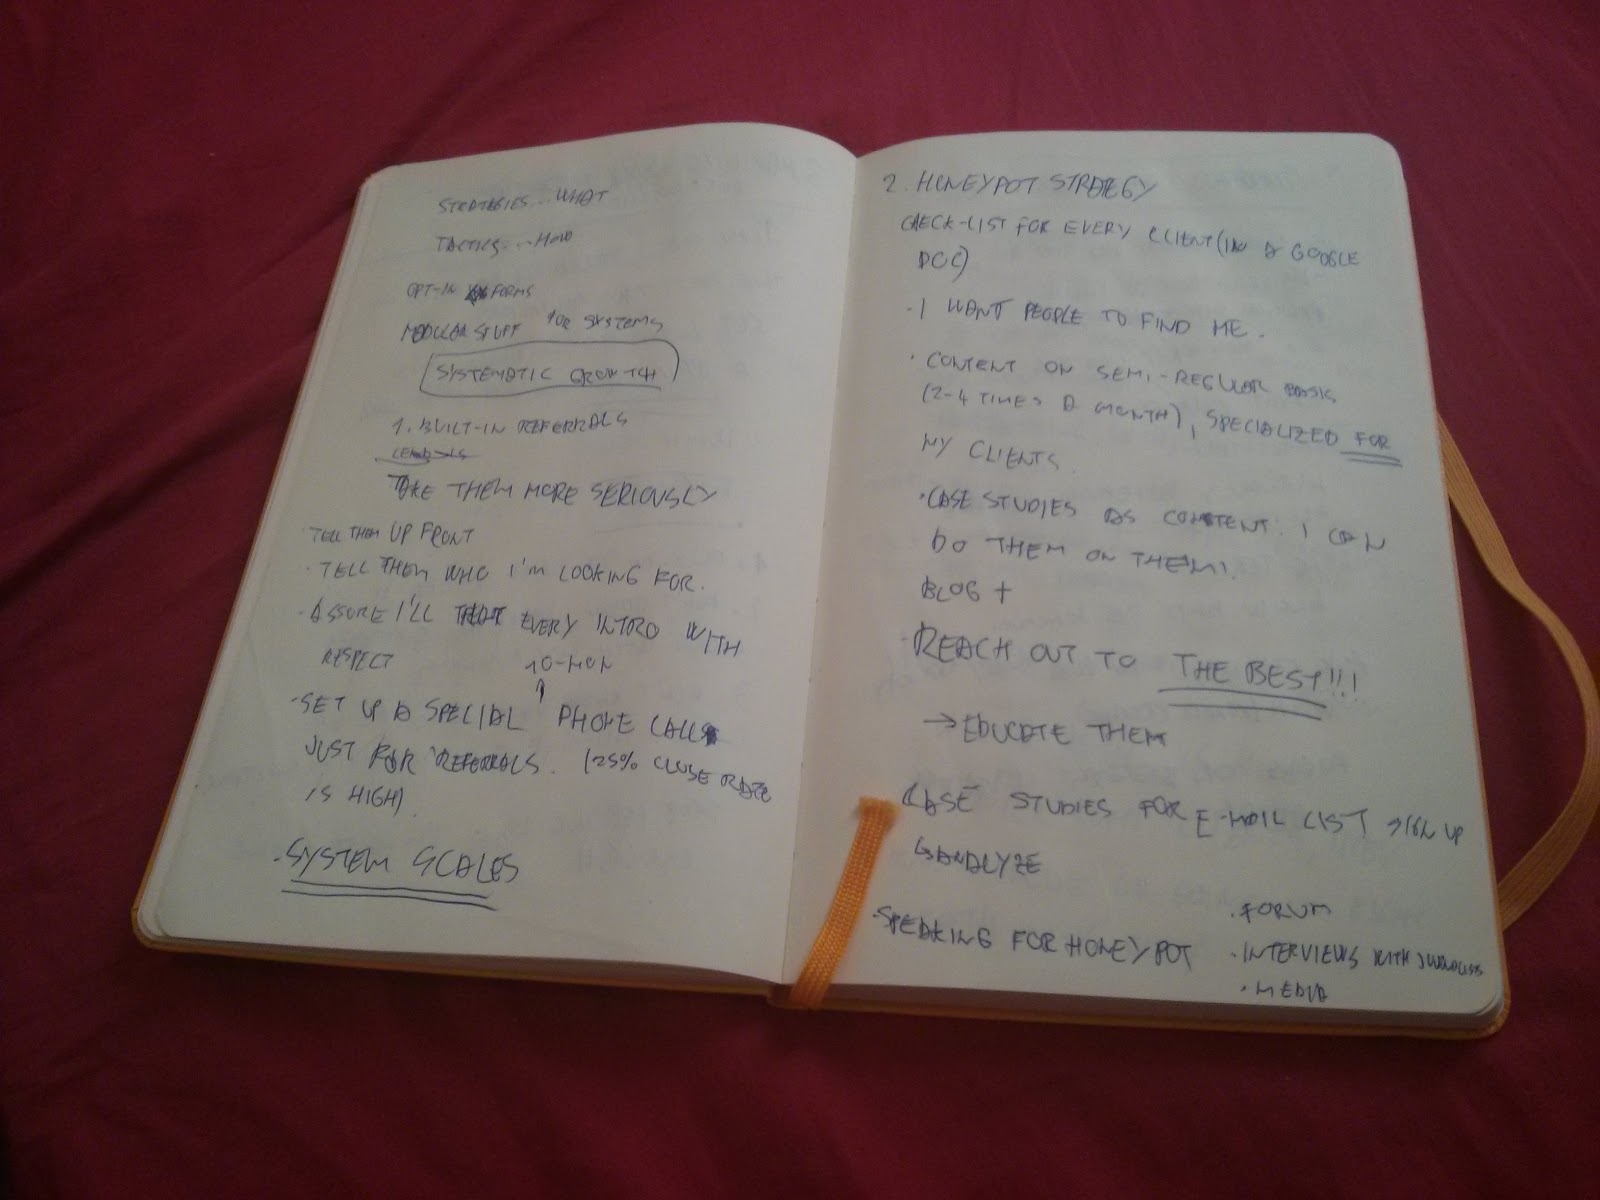 STRATEGIES... WHAT
TACTICS... HOW
OPT-IN FORMS
MODULAR STUFF FOR SYSTEMS
SYSTEMATIC GROWTH
1. BUILT-IN REFERRALS
TAKE THEM MORE SERIOUSLY
· TELL THEM UP FRONT
· TELL THEM WHO I'M LOOKING FOR.
· ASSURE I'LL TREAT EVERY INTRO WITH
RESPECT
10-MIN
· SET UP A SPECIAL PHONE CALL
JUST FOR REFERRALS. (25% CLOSE RATE
IS HIGH)
· SYSTEM SCALES
2. HONEYPOT STRATEGY
CHECK-LIST FOR EVERY CLIENT (IN A GOOGLE
DOC)
· I WANT PEOPLE TO FIND ME.
· CONTENT ON SEMI-REGULAR BASIS
(2-4 TIMES A MONTH), SPECIALIZED FOR
MY CLIENTS
· CASE STUDIES AS CONTENT. I CAN
DO THEM ON THEM!
BLOG +
· REACH OUT TO THE BEST!!!
→ EDUCATE THEM
CASE STUDIES FOR E-MAIL LIST SIGN UP
ANALYZE
· SPEAKING FOR HONEYPOT
· FORUM
· INTERVIEWS WITH
· MEDIA